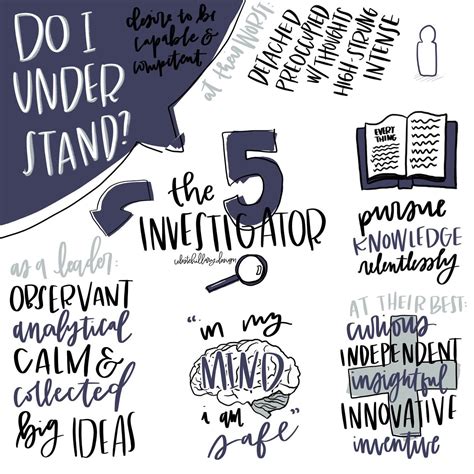 DO I
UNDER
STAND?
desire to be
capable &
competent
at their worst:
DETACHED
PREOCCUPIED
W/ THOUGHTS
HIGH-STRUNG
INTENSE
EVERY
THING
the 5
INVESTIGATOR
pursue
KNOWLEDGE
relentlessly
as a leader:
OBSERVANT
analytical
CALM &
collected
big IDEAS
"in my
MIND
i am
safe"
AT THEIR BEST:
curious
INDEPENDENT
insightful
INNOVATIVE
inventive